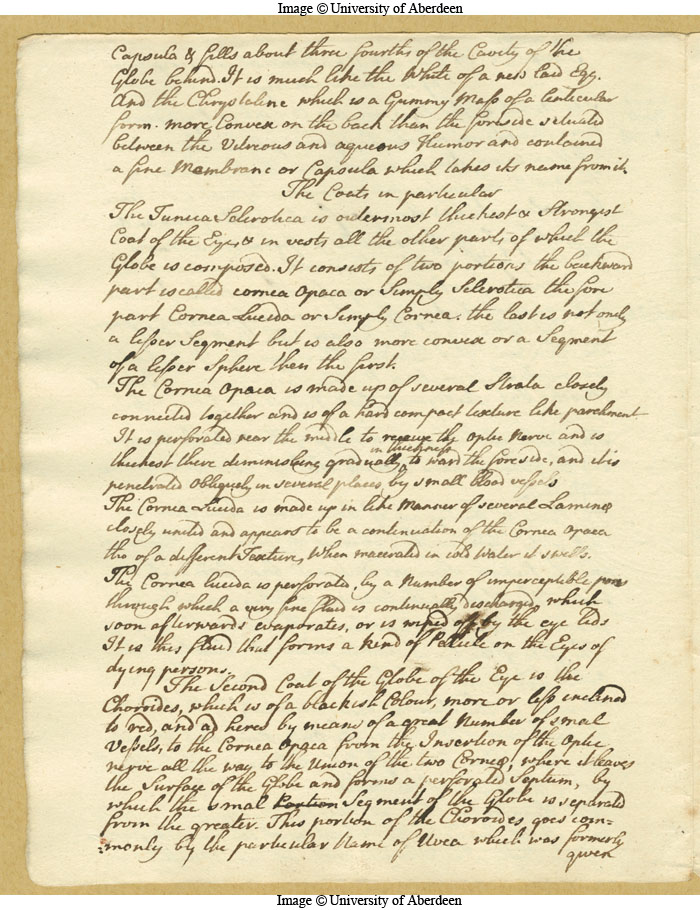 Image © University of Aberdeen
Capsula & fills about three fourths of the Cavity of the
Globe behind. It is much like the White of a new laid Egg.
And the Chrystaline which is a Gummy Mass of a lenticular
form. more Convex on the back than the foreside situated
between the Vitreous and aqueous Humor and contained
a fine Membrane or Capsula which takes its name from it.
The Coats in particular
The Tunica Sclerotica is outermost thickest & Strongest
Coat of the Eye & in vests all the other parts of which the
Globe is composed. It consists of two portions the backward
part is called cornea opaca or Simply Sclerotica the fore
part Cornea Lucida or Simply Cornea: the last is not only
a lesser Segment but is also more convex or a Segment
of a lesser Sphere then the first.
The Cornea Opaca is made up of several Strata closely
connected together and is of a hard compact texture like parchment
It is perforated near the middle to receive the Optic Nerve and is
in thickness
thickest there diminishing gradually to ward the foreside, and it is
penetrated Obliquely in several places, by small blood vessels
The Cornea Lucida is made up in like Manner of several Laminæ
closely united and appears to be a continuation of the Cornea Opaca
tho of a different Texture, When macerated in cold water it swells.
The Cornea lucida is perforated, by a Number of imperceptible pores
through which a very fine fluid is continually discharged, which
soon afterwards evaporates, or is wiped off by the eye lids
It is this fluid that forms a Kend of Pellicle on the Eyes of
dying persons.
The Second Coat of the Globe of the Eye is the
Choroides, which is of a blackish Colour, more or less inclined
to red, and ad heres by means of a great Number of smal
Vessels, to the Cornea Opaca from the Insertion of the Optic
nerve all the way to the Union of the two Corneæ, where it leaves
the Surface of the Globe and forms a perforated Septum, by
which the smal Portion Segment of the Globe is separated
from the greater. This portion of the Choroides goes com=
=monly by the particular Name of Uvea which was formerly
given
Image © University of Aberdeen